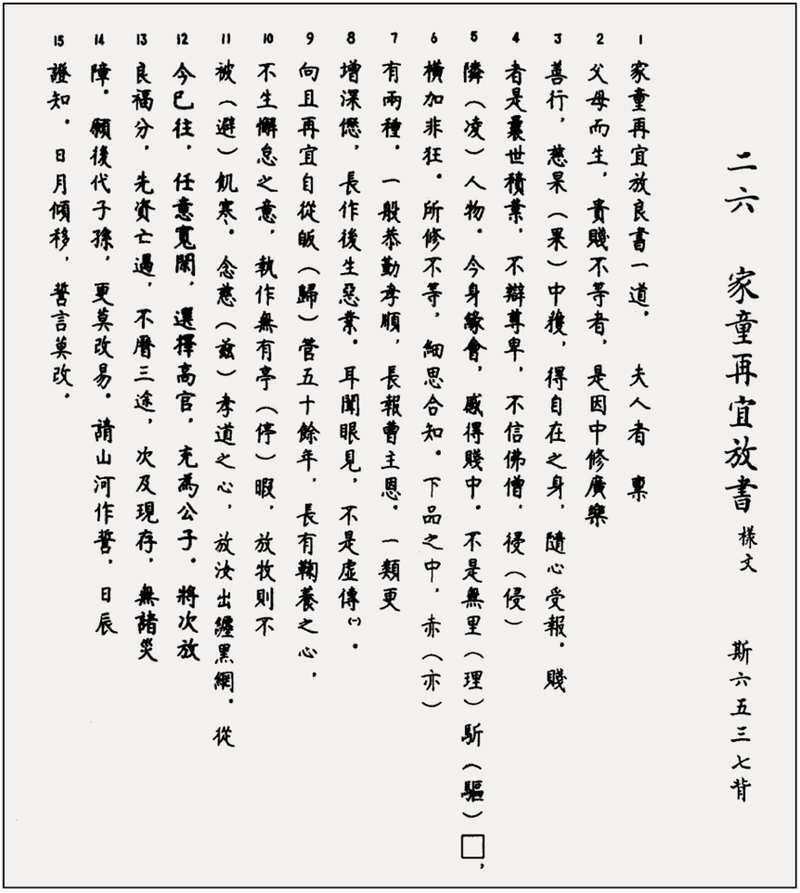 二六 家童再宜放書 樣文 斯六五三七背
1 家童再宜放良書一道。 夫人者 稟
2 父母而生，貴賤不等者，是因中修廣樂
3 善行，慈杲（果）中獲，得自在之身，隨心受報。賤
4 者是曩世積業，不辯尊卑，不信佛僧，𠋫（侵）
5 隣（凌）人物。今身緣會，感得賤中。不是無里（理）䮂（驅）□，
6 橫加非狂。所修不等，細思合知。下品之中，赤（亦）
7 有兩種。一般恭勤孝順，長報曹主恩。一類更
8 增深𠍴，長作後生惡業。耳聞眼見，不是虛傳㈠。
9 向且再宜自從皈（歸）管五十餘年，長有鞠養之心，
10 不生懈怠之意，執作無有亭（停）暇，放牧則不
11 被（避）飢寒。念慈（兹）孝道之心，放汝出纏黑網。從
12 今已往，任意寬閑，選擇高官，充為公子。將次放
13 良福分，先資亡過，不曆三途，次及現存，無諸災
14 障。願後代子孫，更莫改易。請山河作誓，日辰
15 證知。日月傾移，誓言莫改。